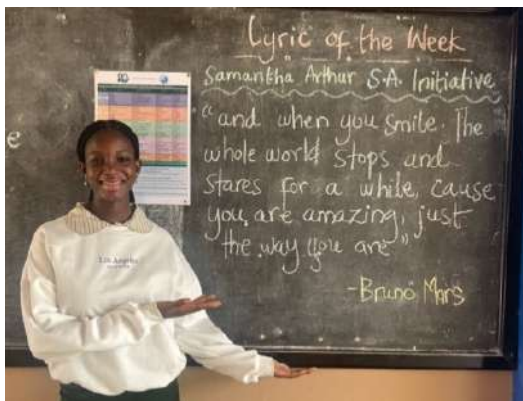 Lyric of the Week
Samantha Arthur S.A. Initiative
e
"and when you smile. The
whole world stops and
stares for a while, cause
you are amazing, just
the way you are"
-Bruno Mars
Los Angeles